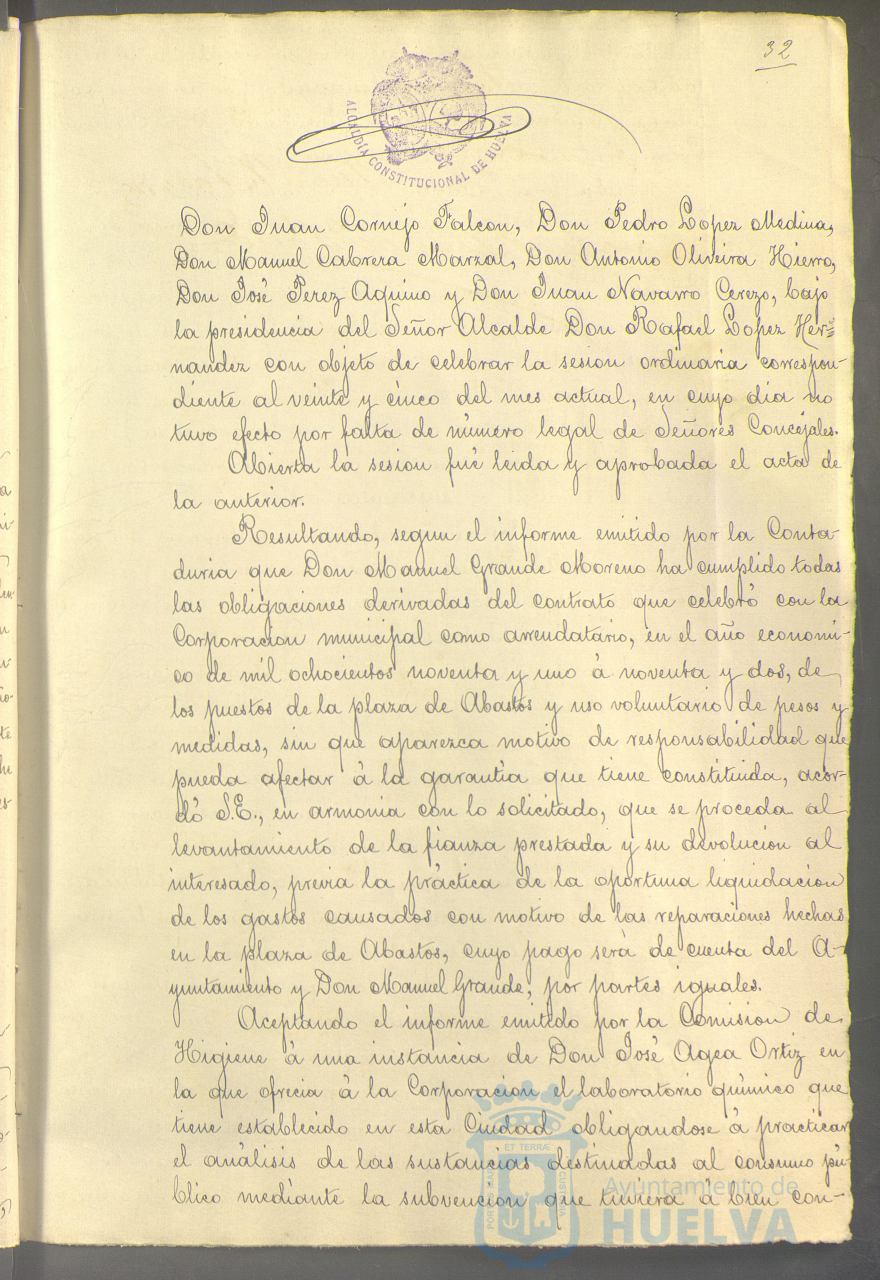 32
ALCALDÍA CONSTITUCIONAL DE HUELVA
Don Juan Cornejo Falcon, Don Pedro Lopez Medina,
Don Manuel Cabrera Marzal, Don Antonio Oliveira Hierro,
Don José Perez Aquino y Don Juan Navarro Cerezo, bajo
la presidencia del Señor Alcalde Don Rafael Lopez Her=
nandez con objeto de celebrar la sesion ordinaria correspon-
diente al veinte y cinco del mes actual, en cuyo dia no
tuvo efecto por falta de número legal de Señores Concejales.
Abierta la sesion fué leida y aprobada el acta de
la anterior.
Resultando, segun el informe emitido por la Conta-
duria que Don Manuel Grande Moreno ha cumplido todas
las obligaciones derivadas del contrato que celebró con la
Corporacion municipal como arrendatario, en el año económi-
co de mil ochocientos noventa y uno á noventa y dos, de
los puestos de la plaza de Abastos y uso voluntario de pesos y
medidas, sin que aparezca motivo de responsabilidad que
pueda afectar á la garantia que tiene constituida, acor-
dó S.E., en armonia con lo solicitado, que se proceda al
levantamiento de la fianza prestada y su devolucion al
interesado, previa la práctica de la oportuna liquidacion
de los gastos causados con motivo de las reparaciones hechas
en la plaza de Abastos, cuyo pago será de cuenta del A-
yuntamiento y Don Manuel Grande, por partes iguales.
Aceptando el informe emitido por la Comision de
Higiene á una instancia de Don José Agea Ortiz en
la que ofrecia á la Corporacion el laboratorio químico que
tiene establecido en esta Ciudad obligandose á practicar
el análisis de las sustancias destinadas al consumo pú-
blico mediante la subvencion que tuviera á bien con-
ET TERRÆ
PORTUS
CUSTODIA
Ayuntamiento de
HUELVA